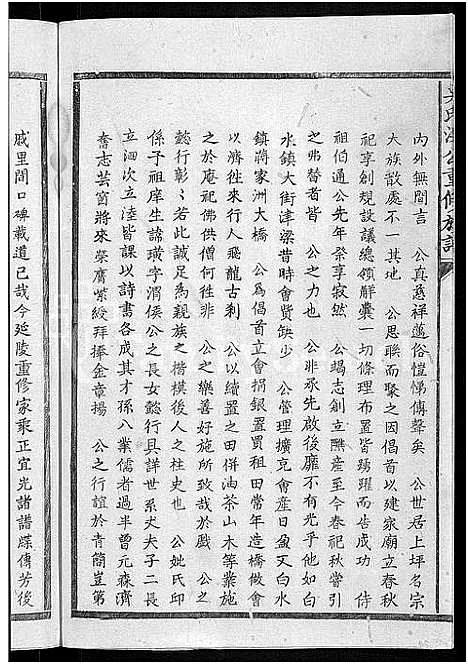 內外無間言　公真慈祥藹俗愷悌傳聲矣　公世居上坪名宗
大族散處不一其地　公思聯而聚之因倡首以建家廟立春秋
祀享創規設議總領解囊一切條理布置皆踴躍而告成功　侍
祖伯通公先年祭享寂然　公竭志創立醮產至今春祀秋嘗引
之弗替者皆　公之力也　公非承先啟後靡不有光乎他如白
水鎮大街津梁昔時會貲缺少　公管理擴充會產日盈又白水
鎮蔣家洲大橋　公爲倡首立會捐銀置買租田常年造橋做會
以濟往來行人飛龍古刹　公以續置之田併油茶山木等業施
於庵爲祀佛供僧何往非　公之樂善好施所致哉於戲　公之
懿行彰彰若此誠足爲親族之楷模後人之柱史也　公妣氏邱
係予祖庠生諱璜字渭侯公之長女懿行具詳世系丈夫子二長
立泗次立淕皆課以詩書各成其才孫八業儒者過半曾元森濟
奮志芸窗將來榮膺紫綬拜捧金章揚　公之行誼於青簡豈第
戚里間口碑載道已哉今延陵重修家乘正宜光諸譜牒傳芳後